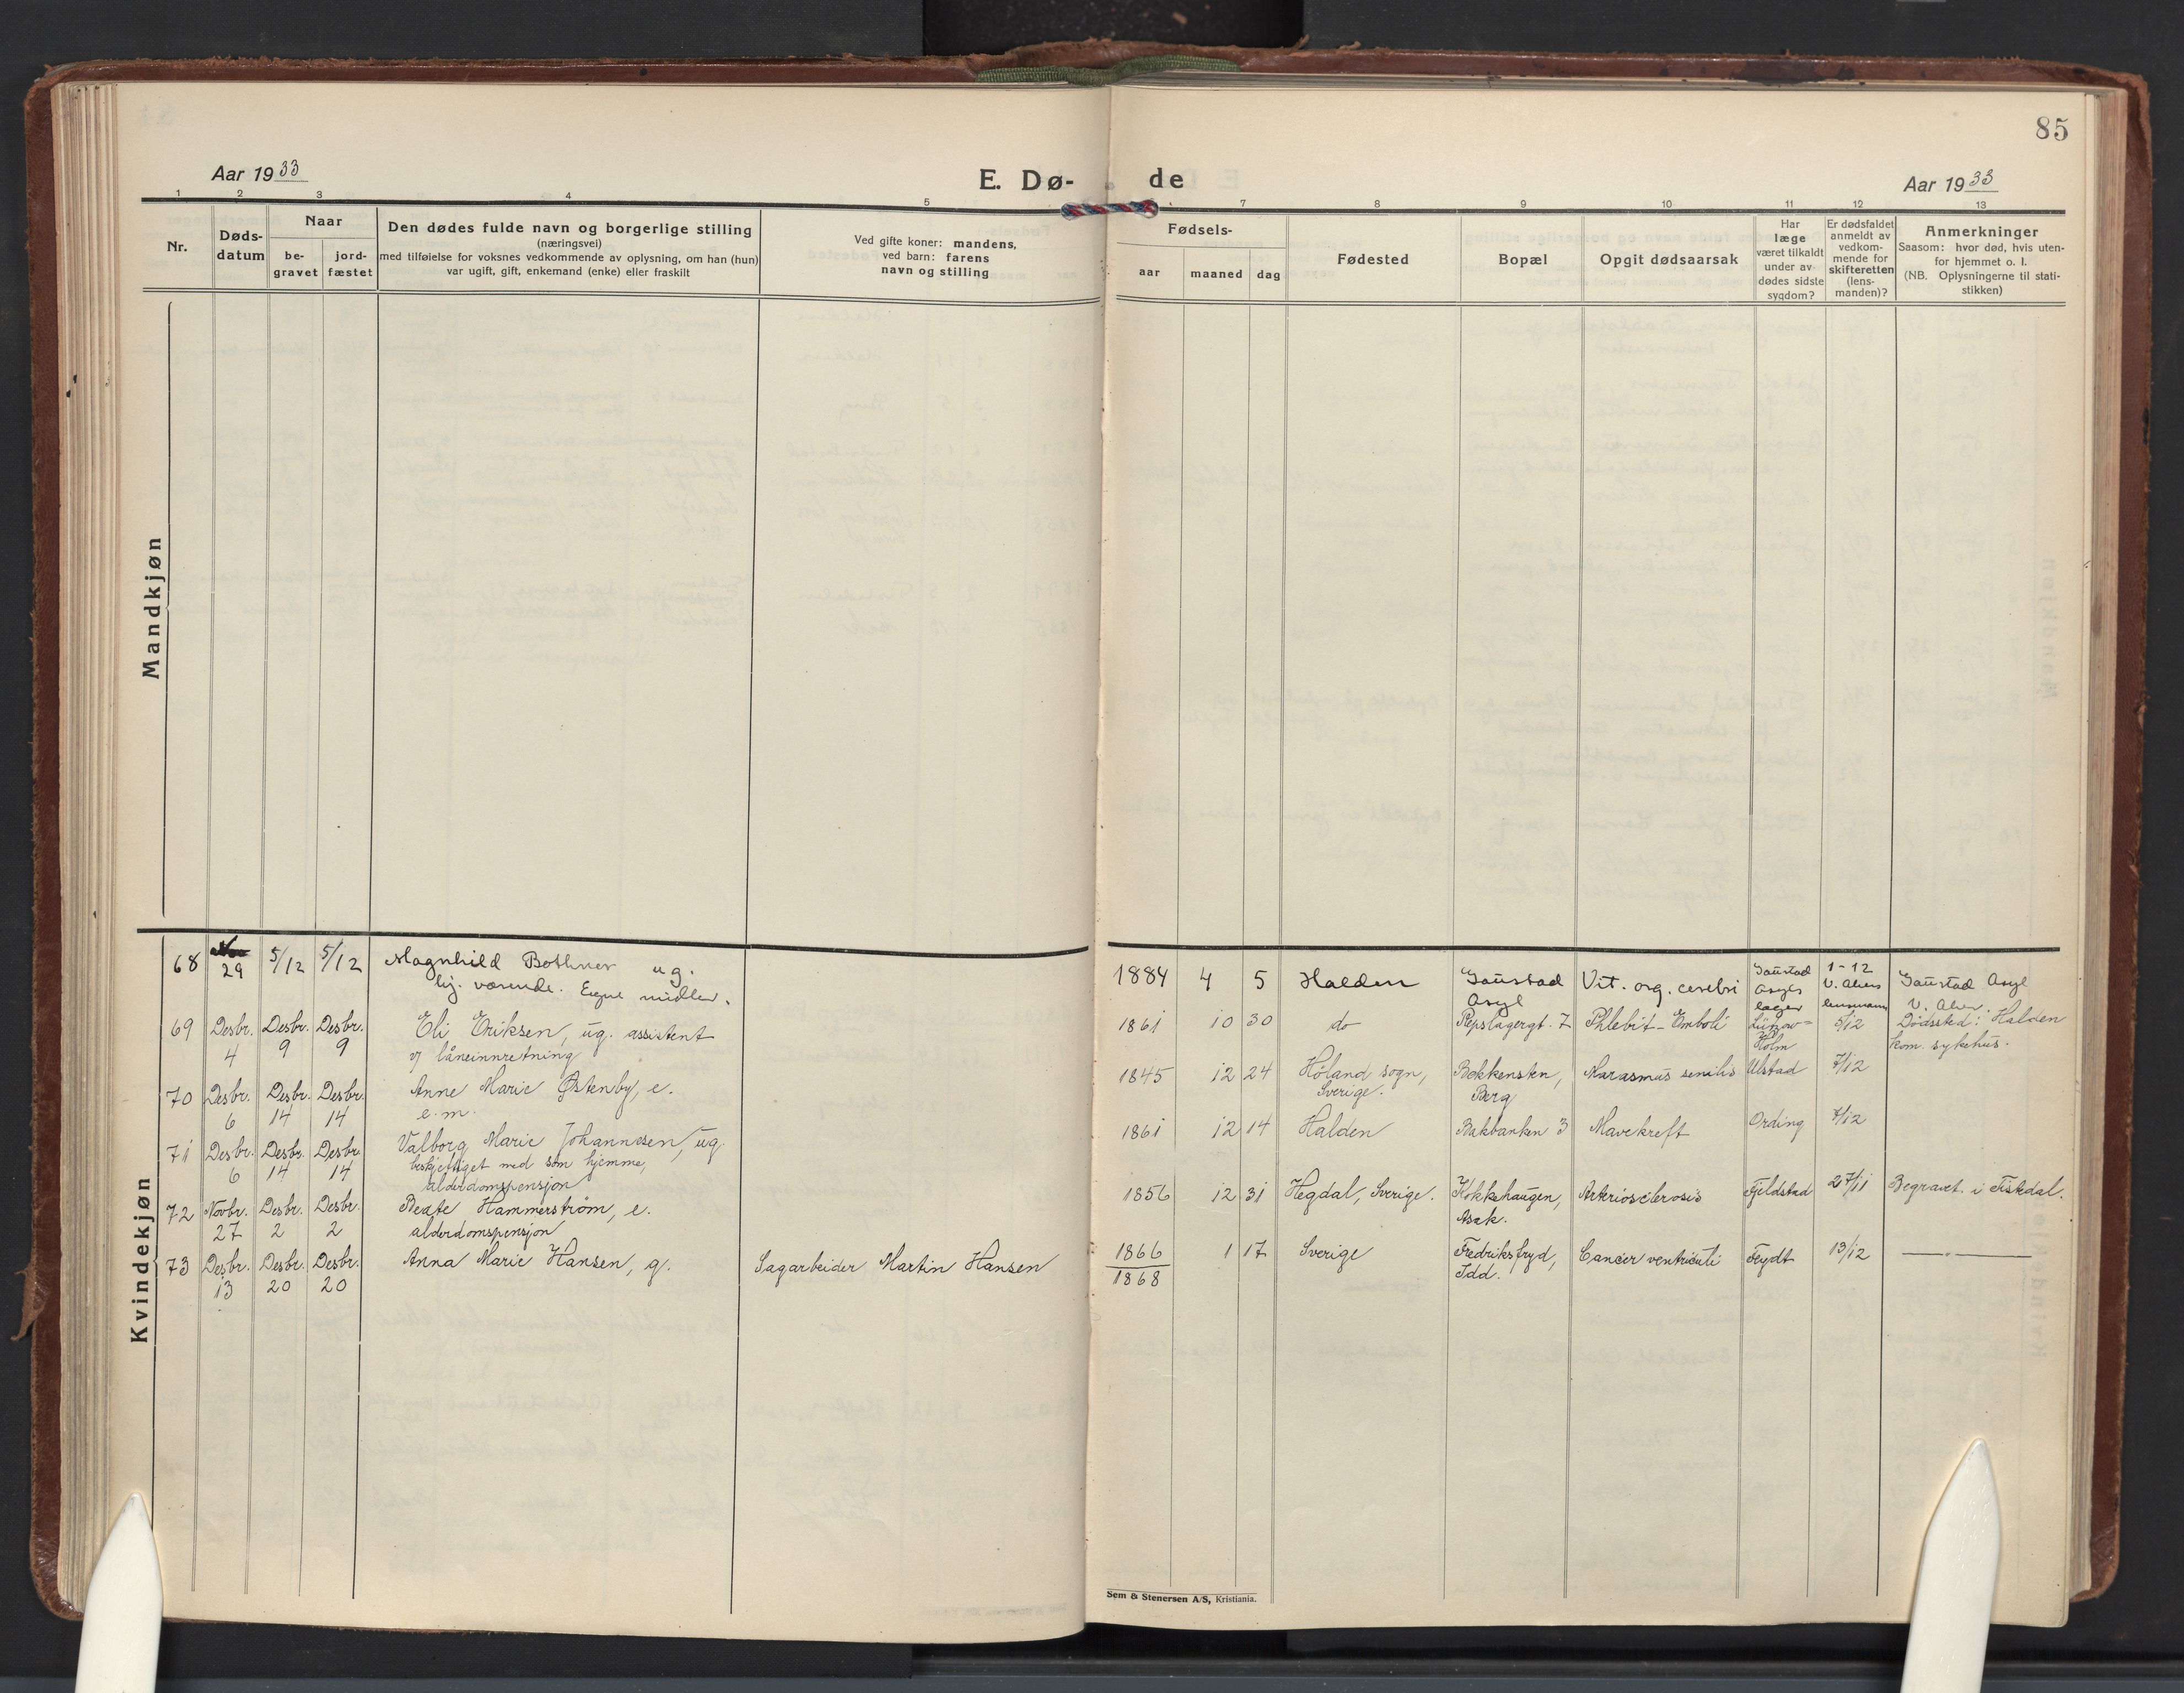 85
Aar 1933
E. Dø-
de
Aar 1933
1 2 3 4 5
7 8 9 10 11 12 13
Nr.
Døds-
datum
Naar
be-
gravet
jord-
fæstet
Den dødes fulde navn og borgerlige stilling
(næringsvei)
med tilføielse for voksnes vedkommende av oplysning, om han (hun)
var ugift, gift, enkemand (enke) eller fraskilt
Ved gifte koner: mandens,
ved barn: farens
navn og stilling
Fødsels-
aar
maaned
dag
Fødested
Bopæl
Opgit dødsaarsak
Har
læge
været tilkaldt
under av-
dødes sidste
sygdom?
Er dødsfaldet
anmeldt av
vedkom-
mende for
skifteretten
(lens-
manden)?
Anmerkninger
Saasom: hvor død, hvis uten-
for hjemmet o. l.
(NB. Oplysningerne til stati-
stikken)
Mandkjøn
Kvindekjøn
68 29 5/12 5/12 Magnhild Bothner ug.
hj. værende. Egne midler.
1884 4 5 Halden Gaustad
Asyl
Vit. org. cerebri Gaustad
Asyls
læger
1-12
lensmann
Gaustad Asyl
V. Aker.
69 Desbr. Desbr. Desbr. Eli Eriksen, ug. assistent
4 9 9 v/ låneinnretning
1861 10 30 do Repslagergt. 7 Phlebit-Emboli Lützow=
Holm
5/12 Dødssted: Halden
kom. sykehus.
70 Desbr. Desbr. Desbr. Anne Marie Østenby, e.
6 14 14 e.m.
1845 12 24 Höland sogn,
Sverige.
Bekkensten,
Berg
Marasmus senilis Ulstad 7/12
71 Desbr. Desbr. Desbr. Valborg Marie Johannesen, ug.
6 14 14 beskjeftiget med søm hjemme,
alderdomspensjon
1861 12 14 Halden Bakbanken 3 Mavekreft Ording 7/12
72 Novbr. Desbr. Desbr. Beate Hammerstrøm, e.
27 2 2 alderdomspensjon
1856 12 31 Hegdal, Sverige. Kokkehaugen,
Asak.
Arteriosclerosis Fjeldstad 27/11 Begravet i Tistedal.
73 Desbr. Desbr. Desbr. Anna Marie Hansen, g. Sagarbeider Martin Hansen
13 20 20
1866 1 17 Sverige Fredriksfryd,
1868
Idd.
Cancer ventriculi Feydt 13/12 —〃—
Sem & Stenersen A/S, Kristiania.